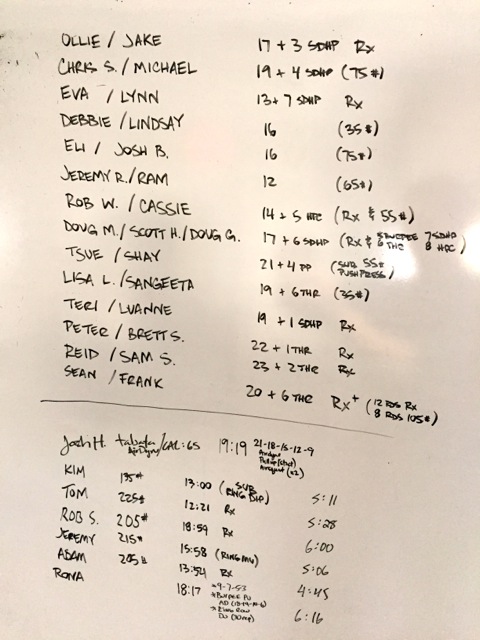 OLLIE / JAKE 17 + 3 SDHP Rx
CHRIS S. / MICHAEL 19 + 4 SDHP (75#)
EVA / LYNN 13 + 7 SDHP Rx
DEBBIE / LINDSAY 16 (35#)
ELI / JOSH B. 16 (75#)
JEREMY R. / RAM 12 (65#)
ROB W. / CASSIE 14 + 5 HPC (Rx & 55#)
DOUG M. / SCOTT H. / DOUG G. 17 + 6 SDHP (Rx & 5 BURPEE 7 SDHP
6 THR 8 HPC)
TSUE / SHAY 21 + 4 PP (SUB 55#
PUSH PRESS)
LISA L. / SANGEETA 19 + 6 THR (35#)
TERI / LUANNE 19 + 1 SDHP Rx
PETER / BRETT S. 22 + 1 THR Rx
REID / SAM S. 23 + 2 THR Rx
SEAN / FRANK 20 + 6 THR Rx+ (12 RDS Rx
8 RDS 105#)
Josh H. tabata / CAL: 65 19:19 21-18-15-12-9
AirDyne
KIM 135# 13:00 (SUB
RING DIP) 5:11
TOM 225# 12:21 Rx 5:28
ROB S. 205# 18:59 Rx 6:00
JEREMY 215# 15:58 (RING MU) 5:06
ADAM 205# 13:54 Rx 4:45
RONA 18:17 6:16